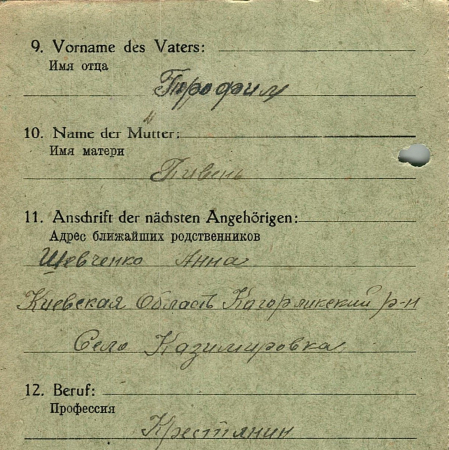 9. Vorname des Vaters:
Имя отца
Трофим
10. Name der Mutter:
Имя матери
Пивень
11. Anschrift der nächsten Angehörigen:
Адрес ближайших родственников
Шевченко Анна
Киевская Область Кагорликский р-н
Село Казимировка
12. Beruf:
Профессия
Крестянин